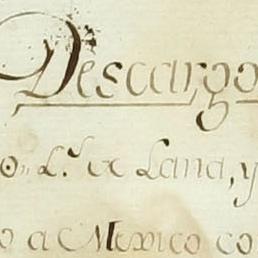 Descargo
on L.s de Lana, y
o a Mexico co